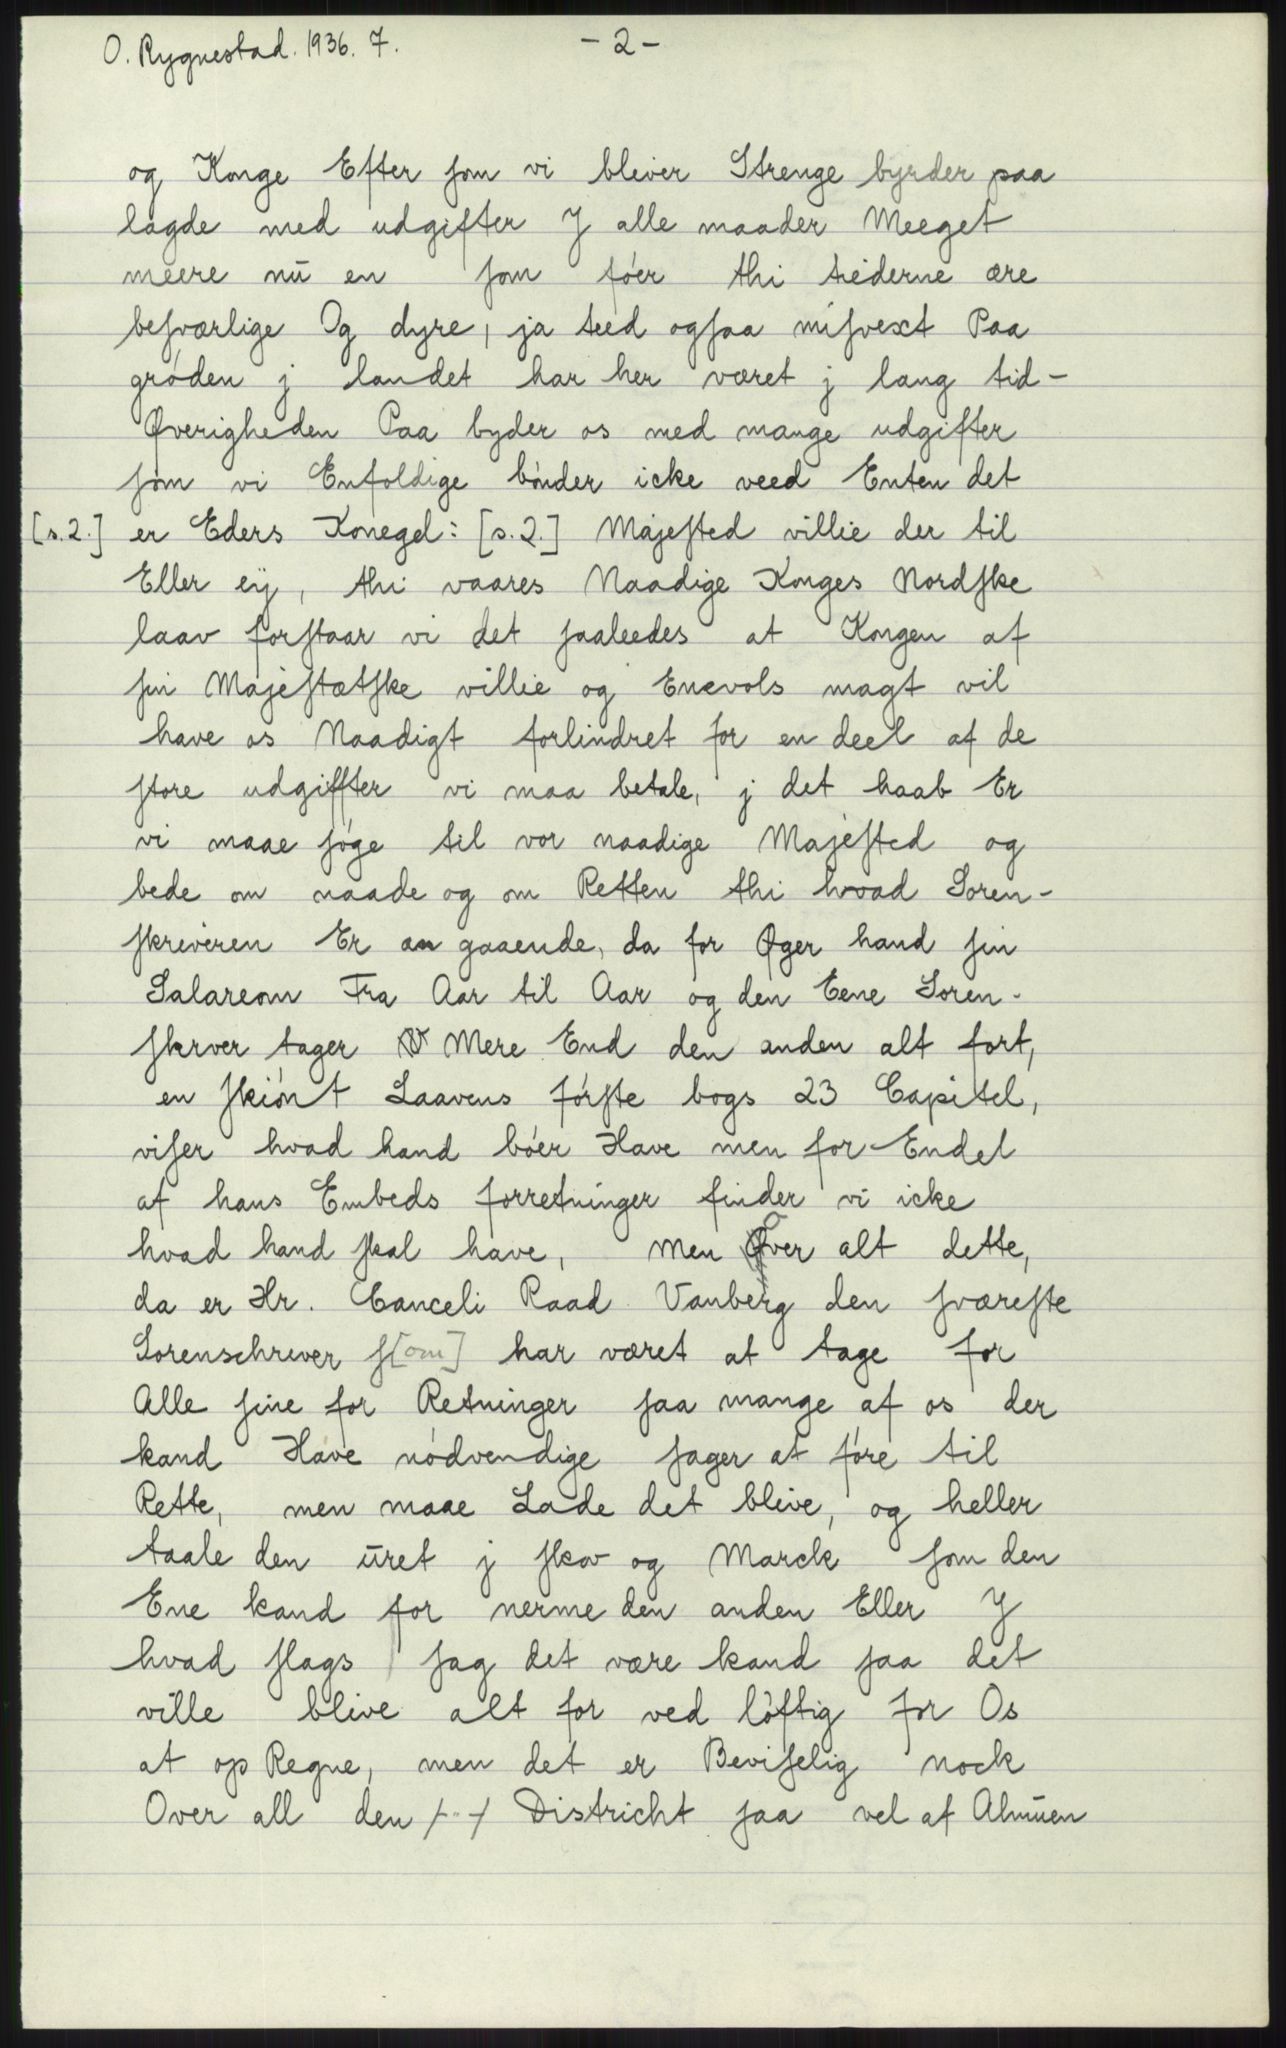 O. Rygnestad. 1936. 7. - 2 -
og Konge Efter som vi bliver Strenge byrder paa
lagde med udgifter J alle maader Meeget
meere nū en som fóer thi tiederne ære
besværlige Og dyre, ja teed ogsaa misvext Paa
gróden j landet har her været j lang tid -
Øverigheden Paa byder os med mange udgifter
som vi Enfoldige bónder icke veed Enten det
[s.2.] er Eders Konegel: [s.2.] Majested villie der til
Eller eÿ, thi vaares Naadige Konges Nordske
laav forstaar vi det saaleedes at Kongen af
sin Majestætske villie og Enevols magt vil
have os Naadigt forlindret for en deel af de
store udgiffter vi maa betale, j det haab Er
vi maae søge til vor naadige Majested og
bede om naade og om Retten thi hvad Soren-
skreveren Er an gaaende, da for Øger hand sin
Salareom Fra Aar til Aar og den Eene Soren-
skrver tager Mere End den anden alt fort,
en skiónt Laavens fórste bogs 23 Capitel,
viser hvad hand bóer Have men for Endel
af hans Embeds forretninger finder vi icke
hvad hand skal have, men Over alt dette,
da er Hr. Canceli Raad Vanberg den sværeste
Sorenschrever s[om] har været at tage for
Alle sine for Retninger saa mange af os der
kand Have nódvendige sager at fóre til
Rette, men maae Lade det blive, og heller
taale den ūret j skov og Marck som den
Ene kand for nerme den anden Eller J
hvad slags sag det være kand saa det
ville blive alt for ved lóftig for Os
at op Regne, men det er Beviselig nock
Over all den /-·-/ Districht saa vel af Almūen